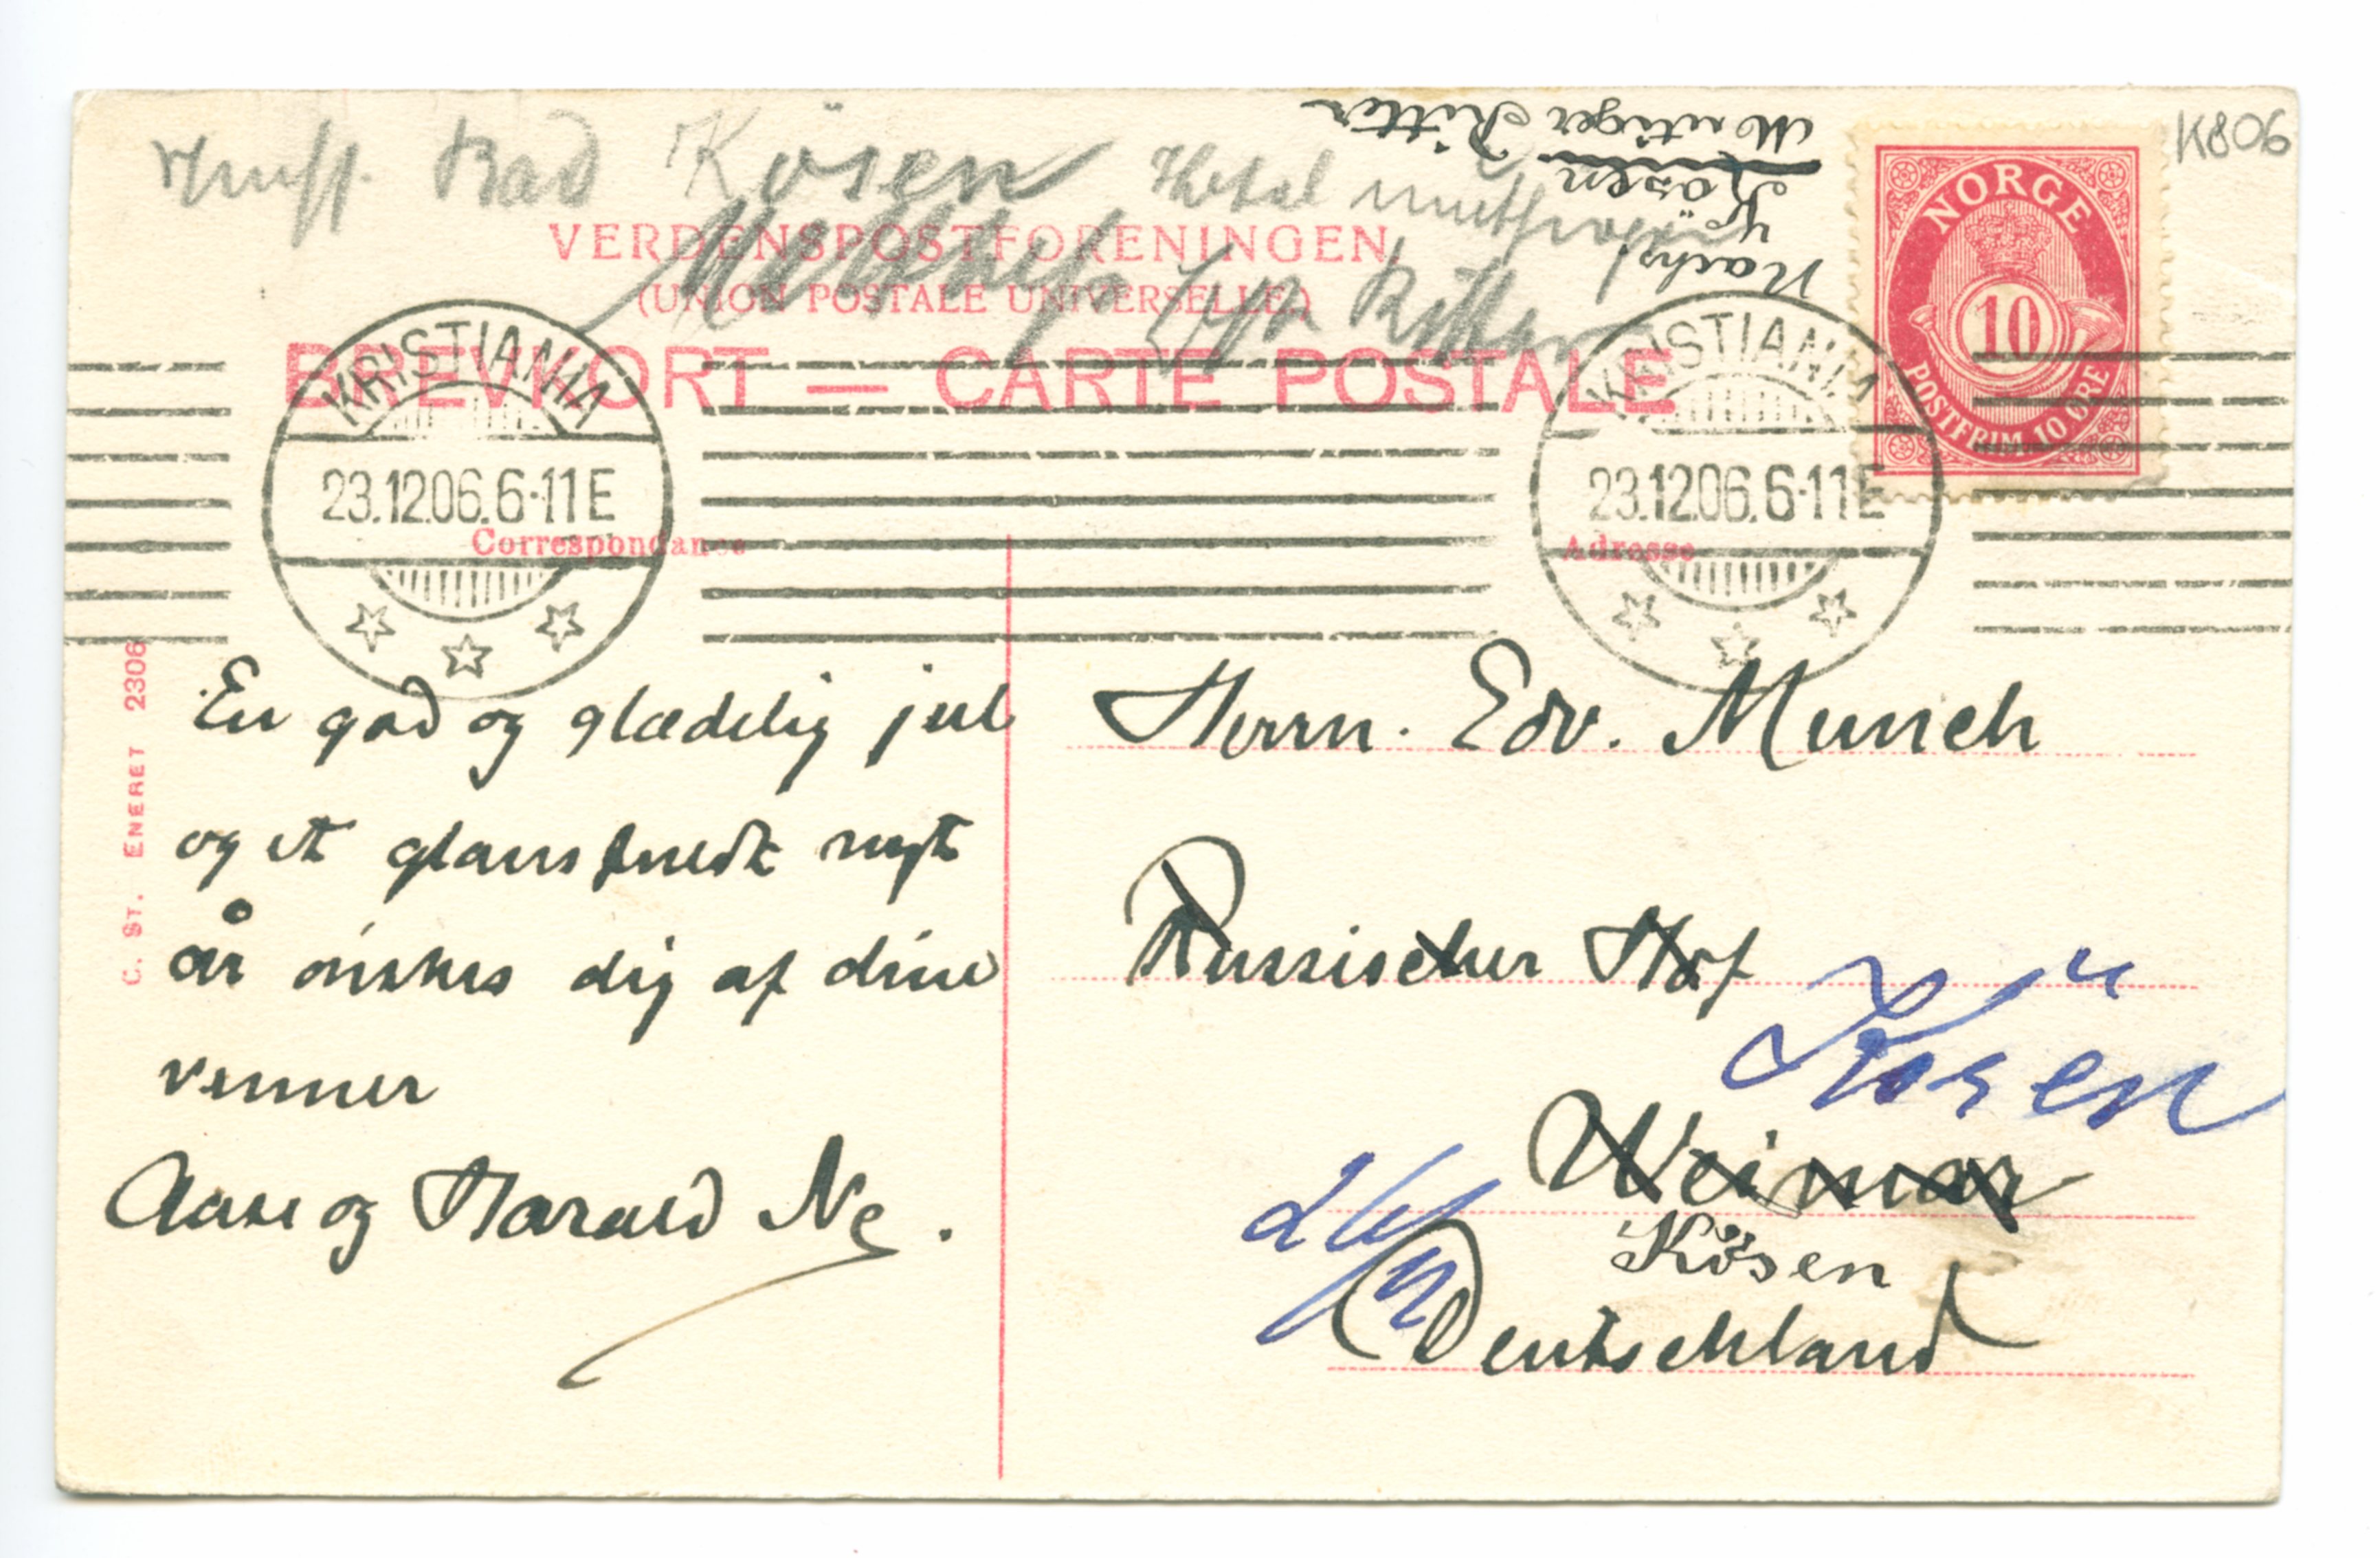 K806
Bad Kösen Hotel
Mutiger Ritter
Kösen
Nach
Ritter
VERDENSPOSTFORENINGEN.
(UNION POSTALE UNIVERSELLE.)
BREVKORT — CARTE POSTALE
NORGE
10
POSTFRIM. 10 ØRE
KRISTIANIA
23.12.06.6-11E
KRISTIANIA
23.12.06.6-11E
Correspondance
Adresse
C. ST. ENERET 2306
En god og glædelig jul
og et glansfuldt nyt
år ønskes dig af dine
venner
Aase og Harald Nø.
Herrn. Edv. Munch
Russischer Hof
Kösen
Weimar
Kösen
26/12
Deutschland